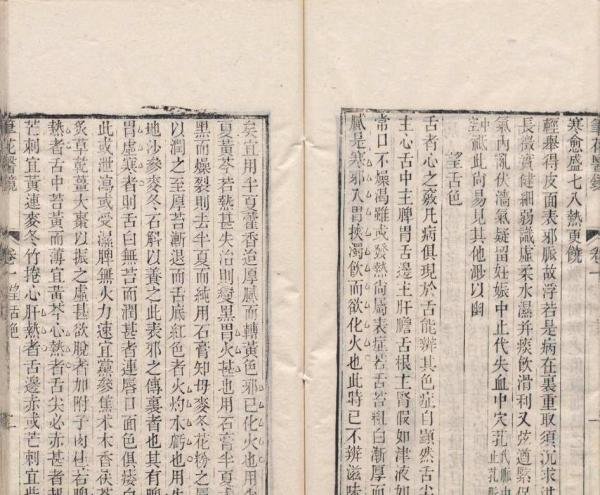 筆花醫鏡 卷一
寒愈盛七八熱更饒
輕舉得皮面表邪脈故浮若是病在裏重取須沉求洪
長徵實健細弱識虛柔水濕并痰飲滑利又弦
氣內亂伏滯氣疑留妊娠中止代失血中穴孔
祗此尚易見其他渺以幽
望舌色
舌者心之竅凡病俱現於舌能辨其色症自顯然舌尖
主心舌中主脾胃舌邊主肝膽舌根主腎假如津液如
常口不燥渴雖或發熱尚屬表症若舌苔粗白漸厚而
膩是寒邪入胃挾濁飲而欲化火也此時已不辨滋味
矣宜用半夏藿香迨厚膩而轉黃色邪已化火也用
夏黃芩若熱甚失治則變黑胃火甚也用石膏半夏
黑而燥裂則去半夏而純用石膏知母麥冬花粉之屬
以潤之至厚苔漸退而舌底紅色者火灼水虧也用生
地沙參麥冬石斛以養之此表邪之傳裏者也其有脾
胃虛寒者則舌白無苔而潤甚者連唇口面色俱痿白
此或泄瀉或受濕脾無火力速宜黨參焦朮木香茯苓
炙草乾薑大棗以振之虛甚欲脫者加附子肉桂若脾
熱者舌中苔黃而薄宜黃芩心熱者舌尖必赤甚者
芒刺宜黃連麥冬竹捲心肝熱者舌邊赤或芒刺宜
筆花醫鏡 卷一 望舌色